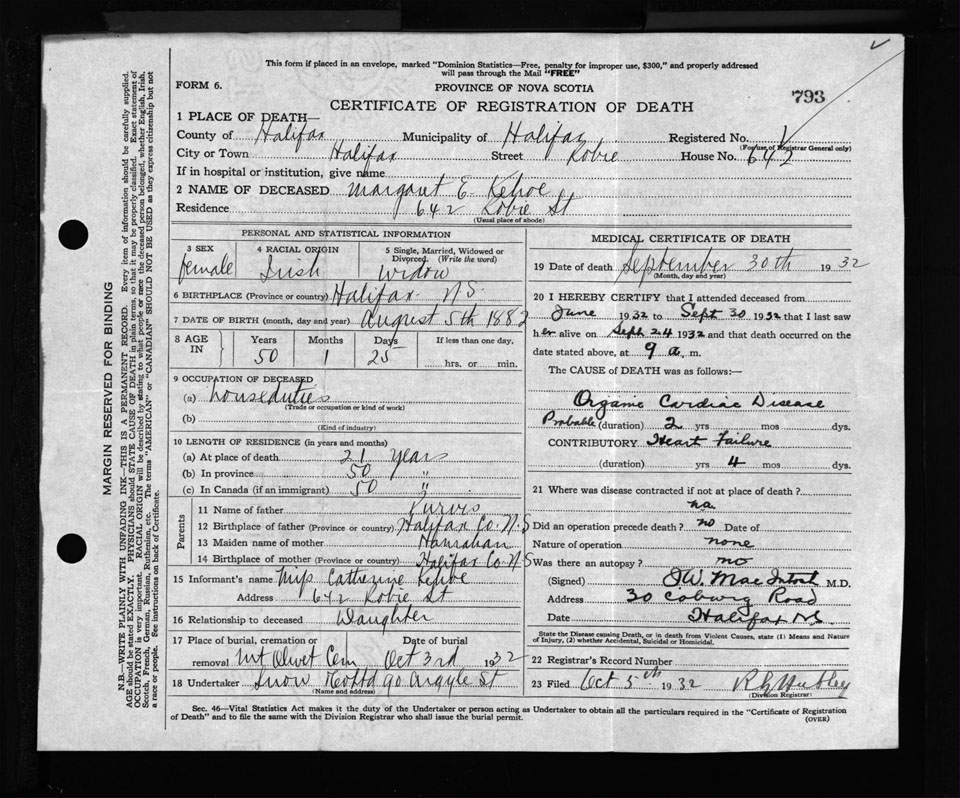 This form if placed in an envelope, marked "Dominion Statistics—Free, penalty for improper use, $300," and properly addressed
will pass through the Mail "FREE"
FORM 6.
PROVINCE OF NOVA SCOTIA
793
CERTIFICATE OF REGISTRATION OF DEATH
1 PLACE OF DEATH—
County of Halifax Municipality of Halifax Registered No.
(For use of Registrar General only)
City or Town Halifax Street Robie House No. 642
If in hospital or institution, give name
2 NAME OF DECEASED Margaret E. Kehoe
Residence 642 Robie St
(Usual place of abode)
PERSONAL AND STATISTICAL INFORMATION
3 SEX 4 RACIAL ORIGIN 5 Single, Married, Widowed or Divorced (Write the word)
female Irish widow
6 BIRTHPLACE (Province or country) Halifax N.S.
7 DATE OF BIRTH (month, day and year) August 5th 1882
8 AGE IN Years Months Days If less than one day,
50 1 25 hrs. or min.
9 OCCUPATION OF DECEASED
(a) houseduties
(Trade or occupation or kind of work)
(b)
(Kind of industry)
10 LENGTH OF RESIDENCE (in years and months)
(a) At place of death 21 years
(b) In province 50 "
(c) In Canada (if an immigrant) 50 "
Parents
11 Name of father Purvis
12 Birthplace of father (Province or country) Halifax Co. N.S
13 Maiden name of mother Hanrahan
14 Birthplace of mother (Province or country) Halifax Co N S
15 Informant's name Miss Catherine Kehoe
Address 642 Robie St
16 Relationship to deceased Daughter
17 Place of burial, cremation or removal Date of burial
Mt Olivet Cem Oct 3rd 1932
18 Undertaker Snow 90 Argyle St
(Name and address)
MEDICAL CERTIFICATE OF DEATH
19 Date of death September 30th 1932
(Month, day and year)
20 I HEREBY CERTIFY that I attended deceased from
June 1932 to Sept 30 1932 that I last saw
her alive on Sept 24 1932 and that death occurred on the
date stated above, at 9 a. m.
The CAUSE of DEATH was as follows:—
Organic Cardiac Disease
Probable (duration) 2 yrs mos dys.
CONTRIBUTORY Heart Failure
(duration) yrs 4 mos dys.
21 Where was disease contracted if not at place of death?
no
Did an operation precede death? no Date of
Nature of operation none
Was there an autopsy? no
(Signed) J W. MacIntosh M.D.
Address 30 Coburg Road
Date Halifax N.S.
State the Disease causing Death, or in death from Violent Causes, state (1) Means and Nature
of Injury, (2) whether Accidental, Suicidal or Homicidal.
22 Registrar's Record Number
23 Filed Oct 5th 1932
(Division Registrar)
Sec. 46—Vital Statistics Act makes it the duty of the Undertaker or person acting as Undertaker to obtain all the particulars required in the "Certificate of Registration
of Death" and to file the same with the Division Registrar who shall issue the burial permit. (OVER)
MARGIN RESERVED FOR BINDING
N.B.—WRITE PLAINLY WITH UNFADING INK—THIS IS A PERMANENT RECORD. Every item of information should be carefully supplied.
AGE should be stated EXACTLY. PHYSICIANS should STATE CAUSE OF DEATH in plain terms, so that it may be properly classified. Exact statement of
OCCUPATION is very important. RACIAL ORIGIN will be described by stating to what people or race the deceased person belonged, whether English, Irish,
Scotch, French, German, Russian, Ruthenian, etc. The terms "AMERICAN" or "CANADIAN" SHOULD NOT BE USED as they express citizenship but not
a race or people. See instructions on back of Certificate.